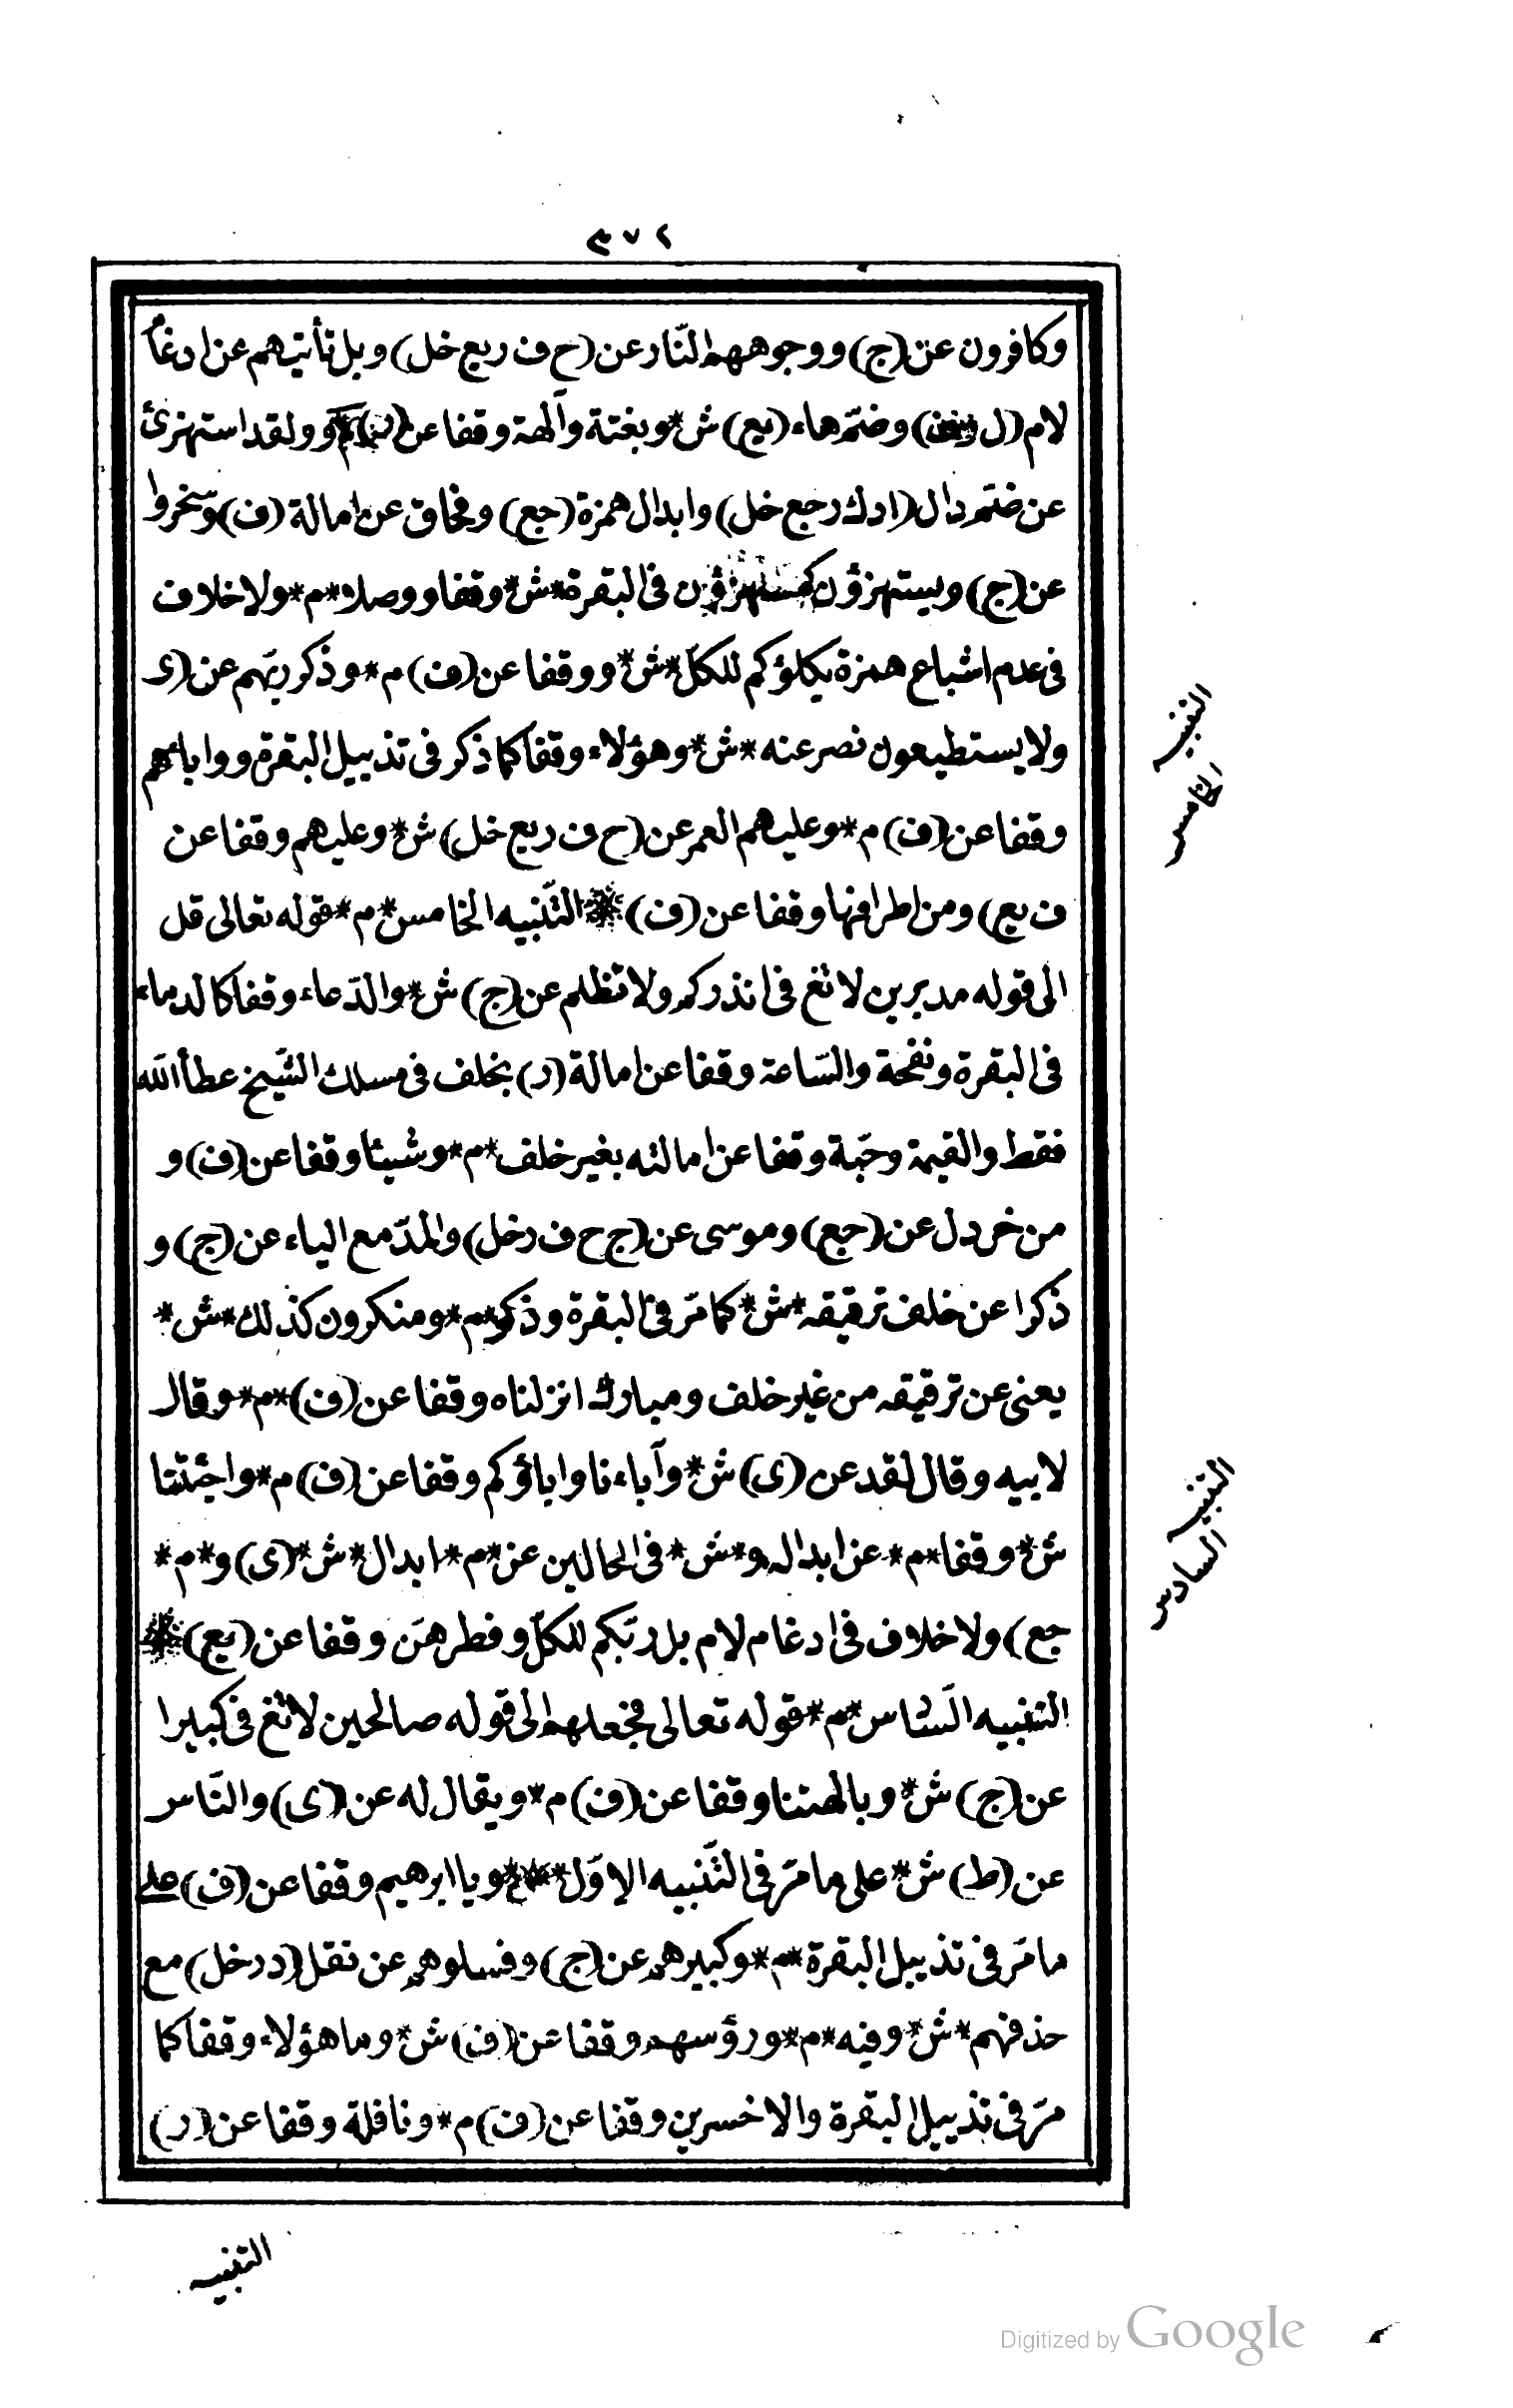 ٣٧٢
وكافرون عن (ج) ووجوههم النّار عن (ح ف ر يع خل) وبل تأتيهم عن ادغام
لام (ل) وضمّ هاء (يع) ش* وبغتة وآلهة وقفا عن (ر) م* ولقد استهزئ
عن ضمّ دال (ا د ك ر جع خل) وابدال همزة (جع) وفحاق عن امالة (ف) وسخروا
عن (ج) ويستهزؤن كمستهزؤن فى البقرة* ش* وقفا ووصلا* م* ولا خلاف
فى عدم اشباع همزة يكلؤكم للكلّ* ش* ووقفا عن (ف) م* وذكر ربّهم عن (ى
ولا يستطيعون نصر عنه* ش* وهؤلاء وقفا كما ذكر فى تذييل البقرة وواباءهم
وقفا عن (ف) م* وعليهم العمر عن (ح ف ر يع خل) ش* وعليهم وقفا عن
ف يع) ومن اطرافها وقفا عن (ف) * التّنبيه الخامس* م* قوله تعالى قل
الى قوله مدبرين لا تغ فى انذركم ولا تظلم عن (ج) ش* والدّعاء وقفا كالدماء
فى البقرة ونفحة والسّاعة وقفا عن امالة (ر) بخلف فى مسلك الشّيخ عطاءالله
فقط والقيمة وحبّة وقفا عن امالته بغير خلف* م* وشيئا وقفا عن (ف) و
من خردل عن (جع) وموسى عن (ج ح ف ر خل) والمدّ مع الياء عن (ج) و
ذكرا عن خلف ترقيقه* ش* كما مرّ فى البقرة وذكر* م* ومنكرون كذلك* ش*
يعنى عن ترقيقه من غير خلف ومبارك انزلناه وقفا عن (ف)* م* وقال
لابيه وقال لقد عن (ى) ش* وآباءنا واباؤكم وقفا عن (ف) م* واجئتنا
ش* وقفا* م* عن ابداله و* ش* فى الحالين عن* م* ابدال* ش* (ى) و* م*
جع) ولا خلاف فى ادغام لام بل ربّكم للكلّ وفطرهنّ وقفا عن (يع) *
التنبيه السّادس* م* قوله تعالى فجعلهم الى قوله صالحين لا تغ فى كبيرا
عن (ج) ش* وبالهتنا وقفا عن (ف) م* ويقال له عن (ى) والنّاس
عن (ط) ش* على ما مرّ فى التّنبيه الاوّل* م* ويا ابرهيم وقفا عن (ف) على
ما مرّ فى تذييل البقرة* م* وكبيرهم عن (ج) وفسلوهم عن نقل (د ر خل) مع
حذفهم* ش* وفيه* م* ورؤسهم وقفا عن (ف) ش* وما هؤلاء وقفا كما
مرّ فى تذييل البقرة والاخسرين وقفا عن (ف) م* ونافلة وقفا عن (ر)
التنبيه
الخامس
التنبيه
السادس
التنبيه
Digitized by Google